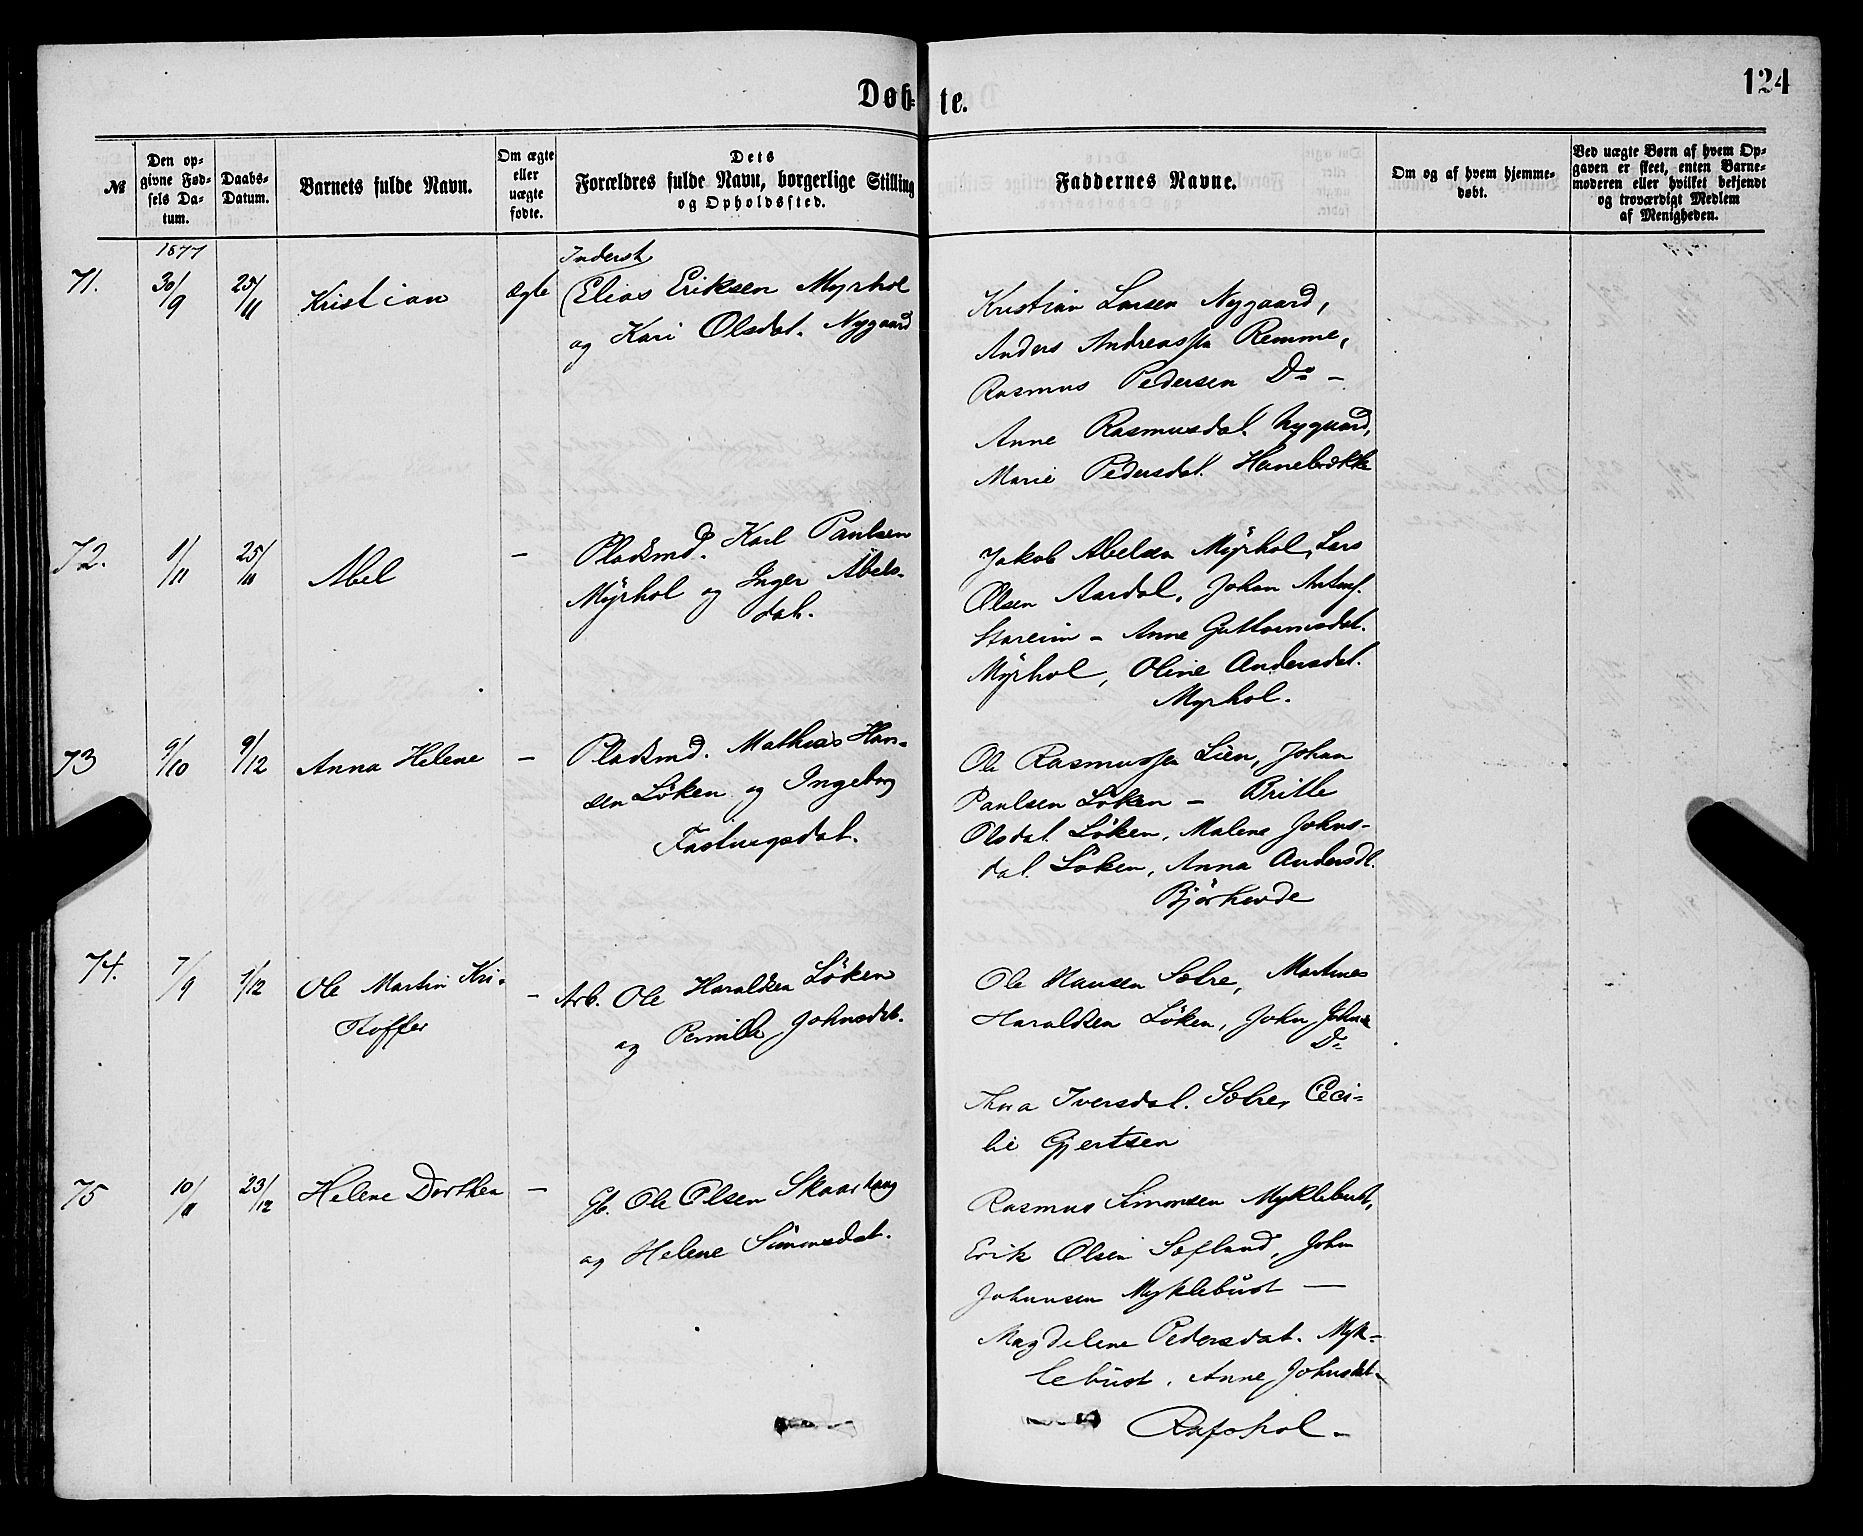 Døb-te.
124
№
Den op-
givne Fød-
sels Da-
tum.
Daabs-
Datum.
Barnets fulde Navn.
Om ægte
eller
uægte
fødte.
Dets
Forældres fulde Navn, borgerlige Stilling
og Opholdssted.
Faddernes Navne.
Om og af hvem hjemme-
døbt.
Ved uægte Børn af hvem Op-
gaven er skeet, enten Barne-
moderen eller hvilket bekjendt
og troværdigt Medlem
af Menigheden.
1877
71.
30/9
25/11
Kristian
Ægte
Inderst
Elias Eriksen Myrhol
og Kari Olsdat. Nygaard
Kristian Larsen Nygaard,
Anders Andreassen Remme,
Rasmus Pedersen Do –
Anne Rasmusdat. Nygaard,
Marie Pedersdat. Hanebrekke
72.
1/11
25/11
Abel
–
Pladsmd. Karl Paulsen
Myrhol og Inger Abels-
dat.
Jakob Abelsen Myrhol, Lars
Olsen Aardal, Johan
Stareim – Anne Guttormsdat.
Myrhol, Oline Andersdat.
Myrhol.
73
9/10
9/12
Anna Helene
–
Pladsmd. Mathias Han-
sen Løken og Ingeborg
Fastingsdat.
Ole Rasmussen Lien, Johan
Paulsen Løken – Britte
Olsdat. Løken, Malene Johns-
dat. Løken, Anna Andersdt.
74.
7/9
1/12
Ole Martin Kri-
stoffer
–
Arb. Ole Haraldsen Løken
og Pernille Johnsdat.
Ole Hansen Solre, Martines
Haraldsen Løken, John Johns.
Do
Thea Iversdat. Solre, Ceci-
lie Gjertsen
75
10/11
23/12
Helene Dorthea
–
Gb. Ole Olsen Skaarhaug
og Helene Simonsdat.
Rasmus Simonsen Myklebust,
Erik Olsen Sæfland, John
Johnnsen Myklebust —
Magdelene Pedersdat. Myk-
lebust, Anne Johnsdat.